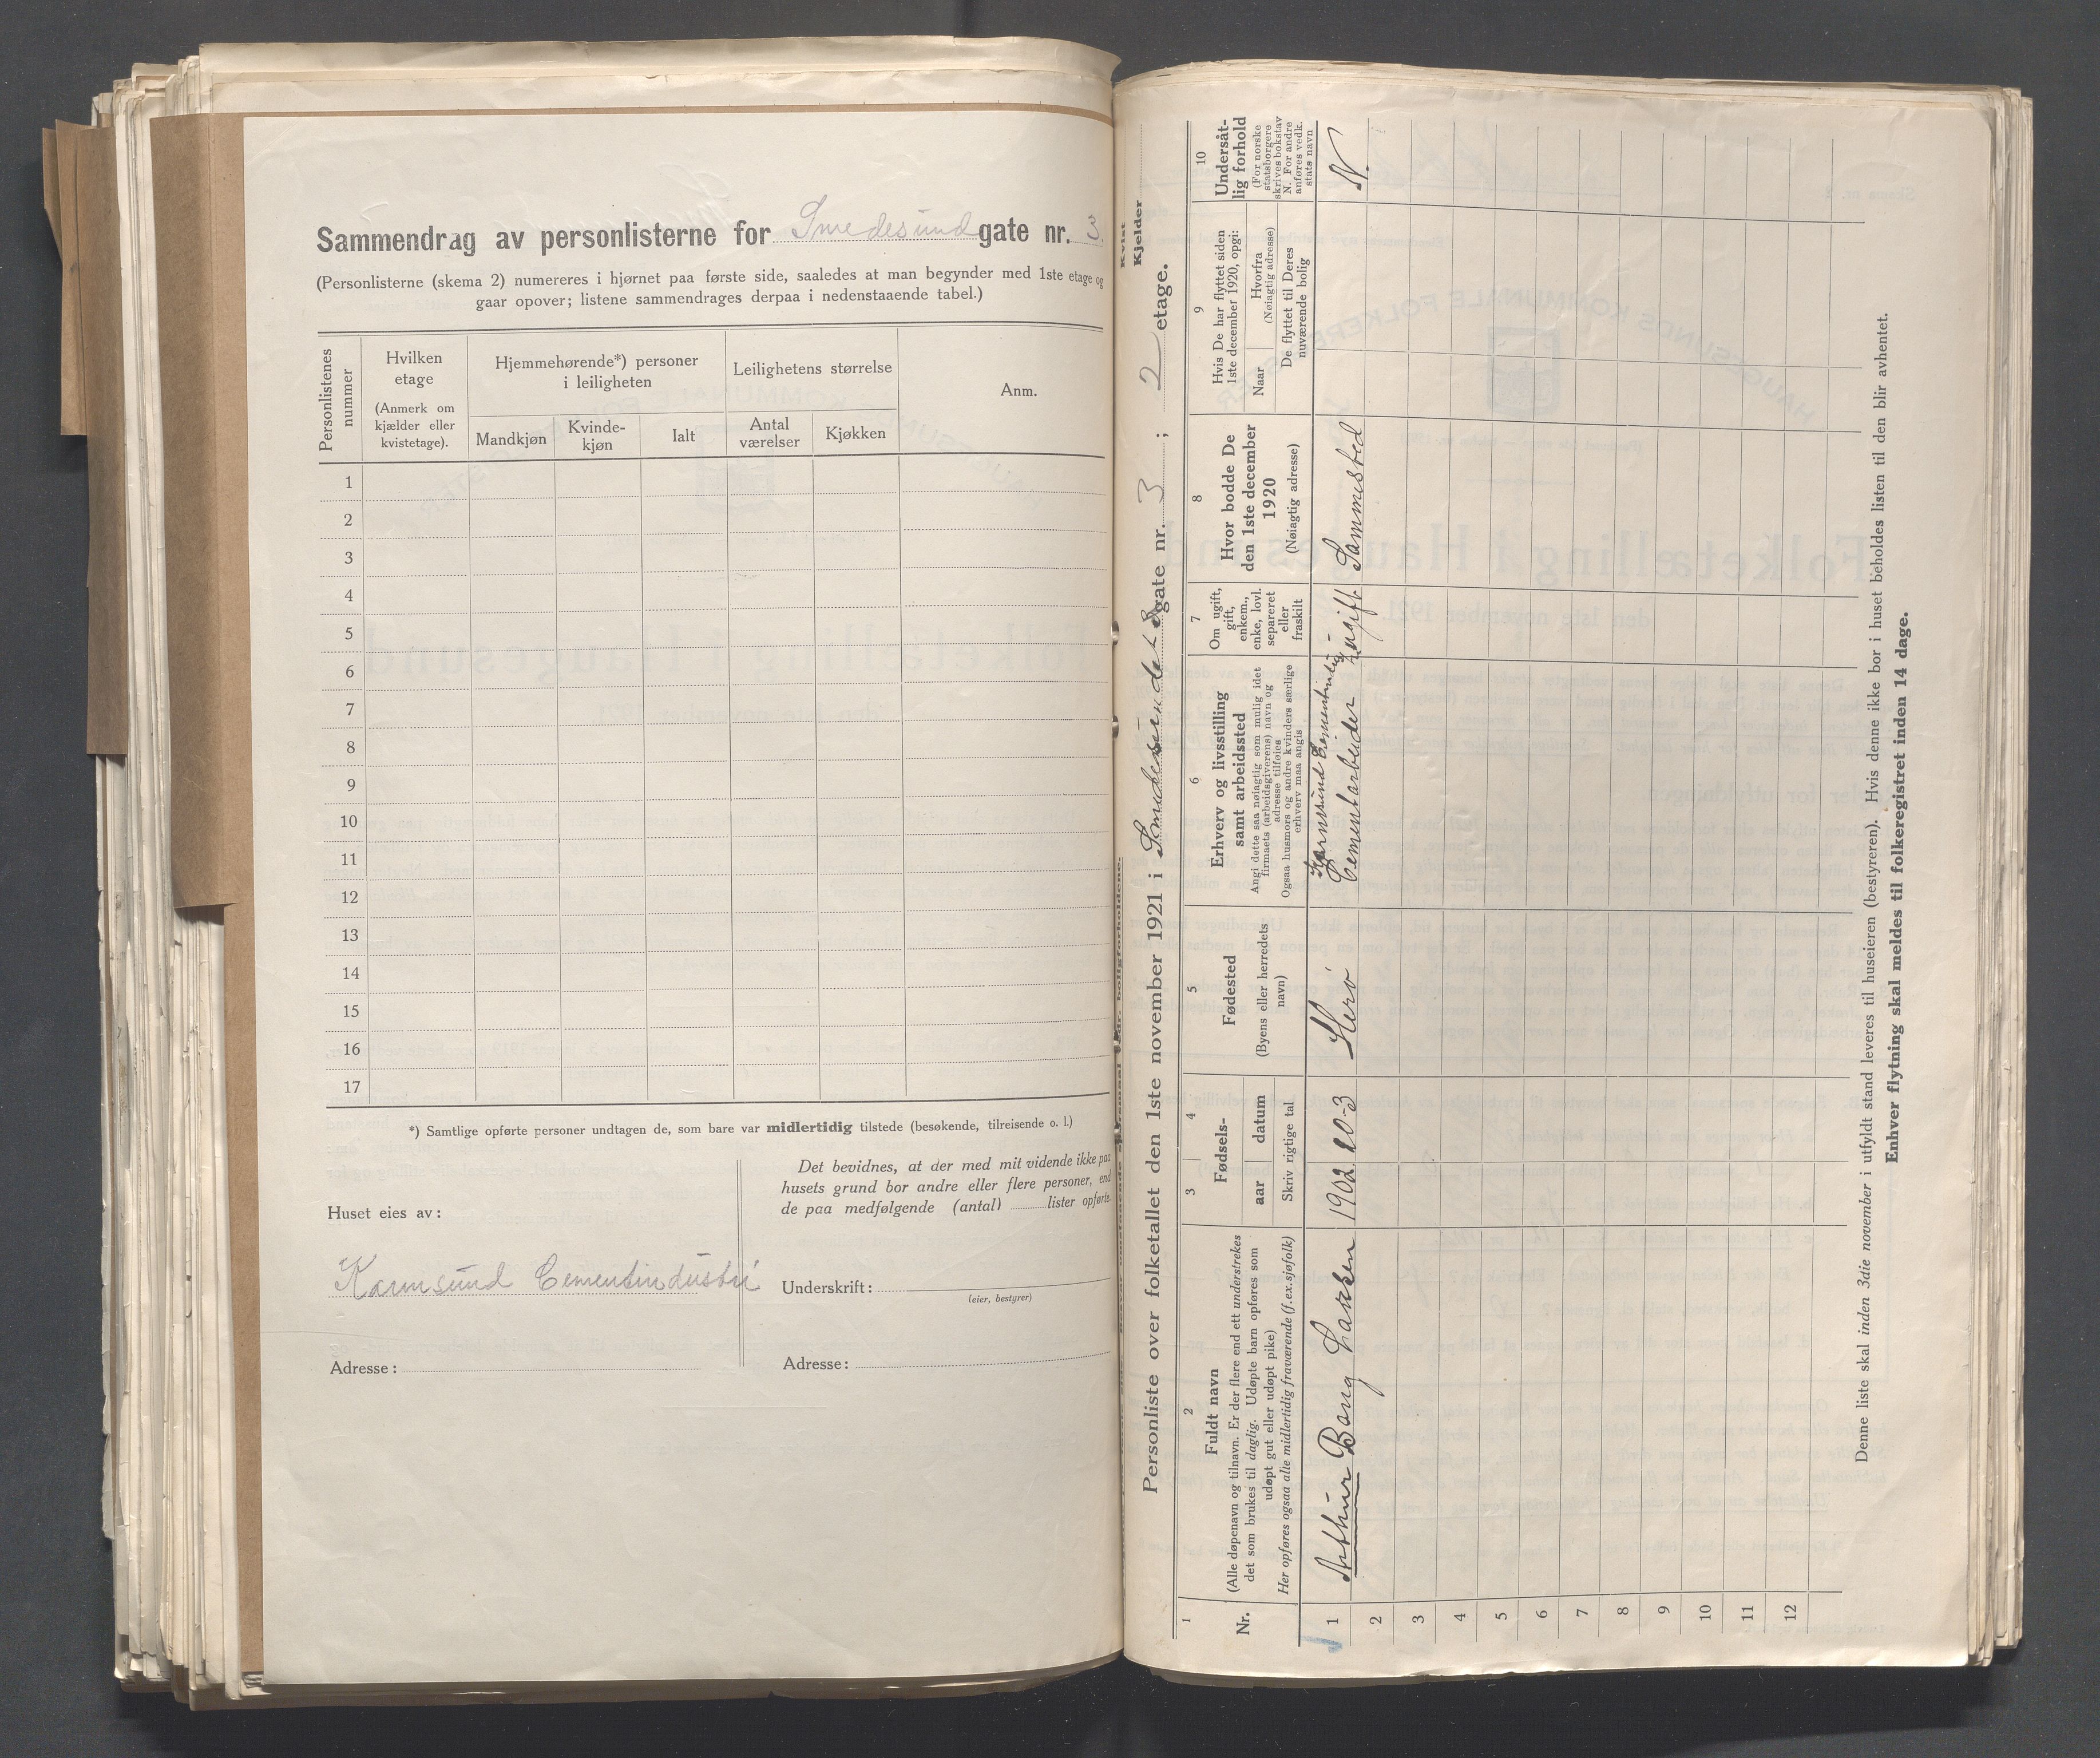 Sammendrag av personlisterne for Smedesund gate nr. 3.
(Personlisterne (skema 2) numereres i hjørnet paa første side, saaledes at man begynder med 1ste etage og
gaar opover; listene sammendrages derpaa i nedenstaaende tabel.)
Personlistenes nummer
Hvilken etage
(Anmerk om kjælder eller kvistetage).
Hjemmehørende*) personer i leiligheten
Mandkjøn
Kvindekjøn
Ialt
Leilighetens størrelse
Antal værelser
Kjøkken
Anm.
1
2
3
4
5
6
7
8
9
10
11
12
13
14
15
16
17
*) Samtlige opførte personer undtagen de, som bare var midlertidig tilstede (besøkende, tilreisende o. l.)
Huset eies av:
Karmsund Cementindustri
Adresse:
Det bevidnes, at der med mit vidende ikke paa
husets grund bor andre eller flere personer, end
de paa medfølgende (antal) lister opførte.
Underskrift:
(eier, bestyrer)
Adresse:
Personliste over folketallet den 1ste november 1921 i Smedesundet gate nr. 3; 2 etage.
Kvist
Kjelder
1
Nr.
2
Fuldt navn
(Alle døpenavn og tilnavn. Er der flere end ett understrekes
det som brukes til daglig. Udøpte barn opføres som
udøpt gut eller udøpt pike)
Her opføres ogsaa alle midlertidig fraværende (f.ex.sjøfolk)
3 4
Fødsels-
aar datum
Skriv rigtige tal
5
Fødested
(Byens eller herredets
navn)
6
Erhverv og livsstilling
samt arbeidssted
Angi dette saa nøiagtig som mulig idet
firmaets (arbeidsgiverens) navn og
adresse tilføies
Ogsaa husmors og andre kvinders særlige
erhverv maa angis
7
Om ugift,
gift,
enkem.,
enke, lovl.
separeret
eller
fraskilt
8
Hvor bodde De
den 1ste december
1920
(Nøiagtig adresse)
9
Hvis De har flyttet siden
1ste december 1920, opgi:
Naar
Hvorfra
(Nøiagtig adresse)
De flyttet til Deres
nuværende bolig
10
Undersåt-
lig forhold
(For norske
statsborgere
skrives bokstav
N. For andre
anføres vedk.
stats navn
1 Arthur Bang Larsen 1902 20-3 Karmsund Cementindustri
Cementarbeider ugift Sammested N.
2
3
4
5
6
7
8
9
10
11
12
Denne liste skal inden 3die november i utfyldt stand leveres til huseieren (bestyreren). Hvis denne ikke bor i huset beholdes listen til den blir avhentet.
Enhver flytning skal meldes til folkeregistret inden 14 dage.